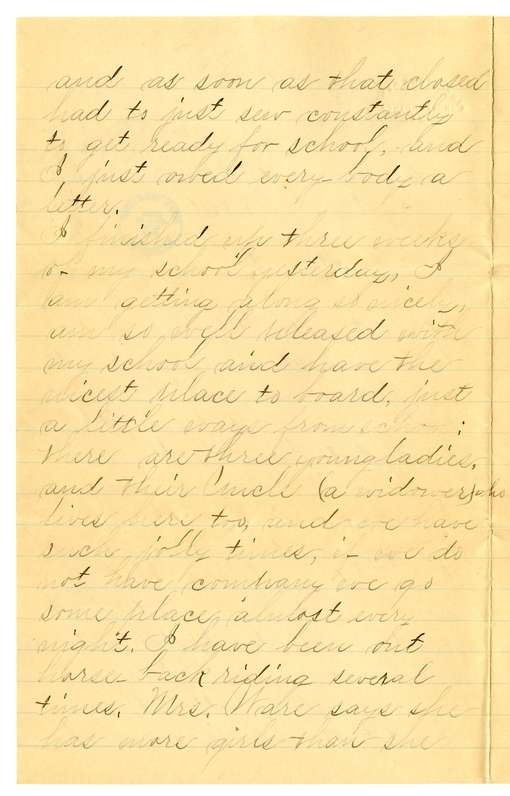 and as soon as that closed
had to just sew constantly
to get ready for school, and
I just owed every body a
letter.
I finished up three weeks
of my school yesterday, I
am getting along so nicely,
am so well pleased with
my school and have the
nicest place to board, just
a little ways from school;
there are three young ladies,
and their Uncle (a widower) who
lives here too, and we have
such jolly times, if we do
not have company we go
some place almost every
night. I have been out
horse-back riding several
times. Mrs. Ware says she
has more girls than she